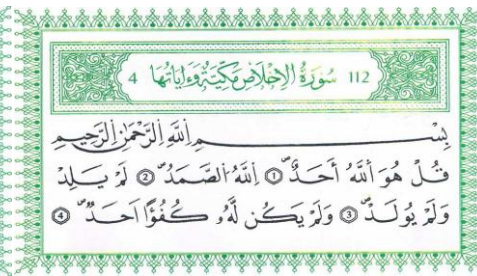 112 سُورَةُ الْإِخْلَاصِ مَكِّيَّةٌ وَءَايَاتُهَا 4
بِسْمِ اللَّهِ الرَّحْمَٰنِ الرَّحِيمِ
قُلْ هُوَ اَ۬للَّهُ أَحَدٌ ۝1 اِ۬للَّهُ اُ۬لصَّمَدُ ۝2 لَمْ يَلِدْ
وَلَمْ يُولَدْ ۝3 وَلَمْ يَكُن لَّهُۥ كُفُؤًا اَحَدٌ ۝4